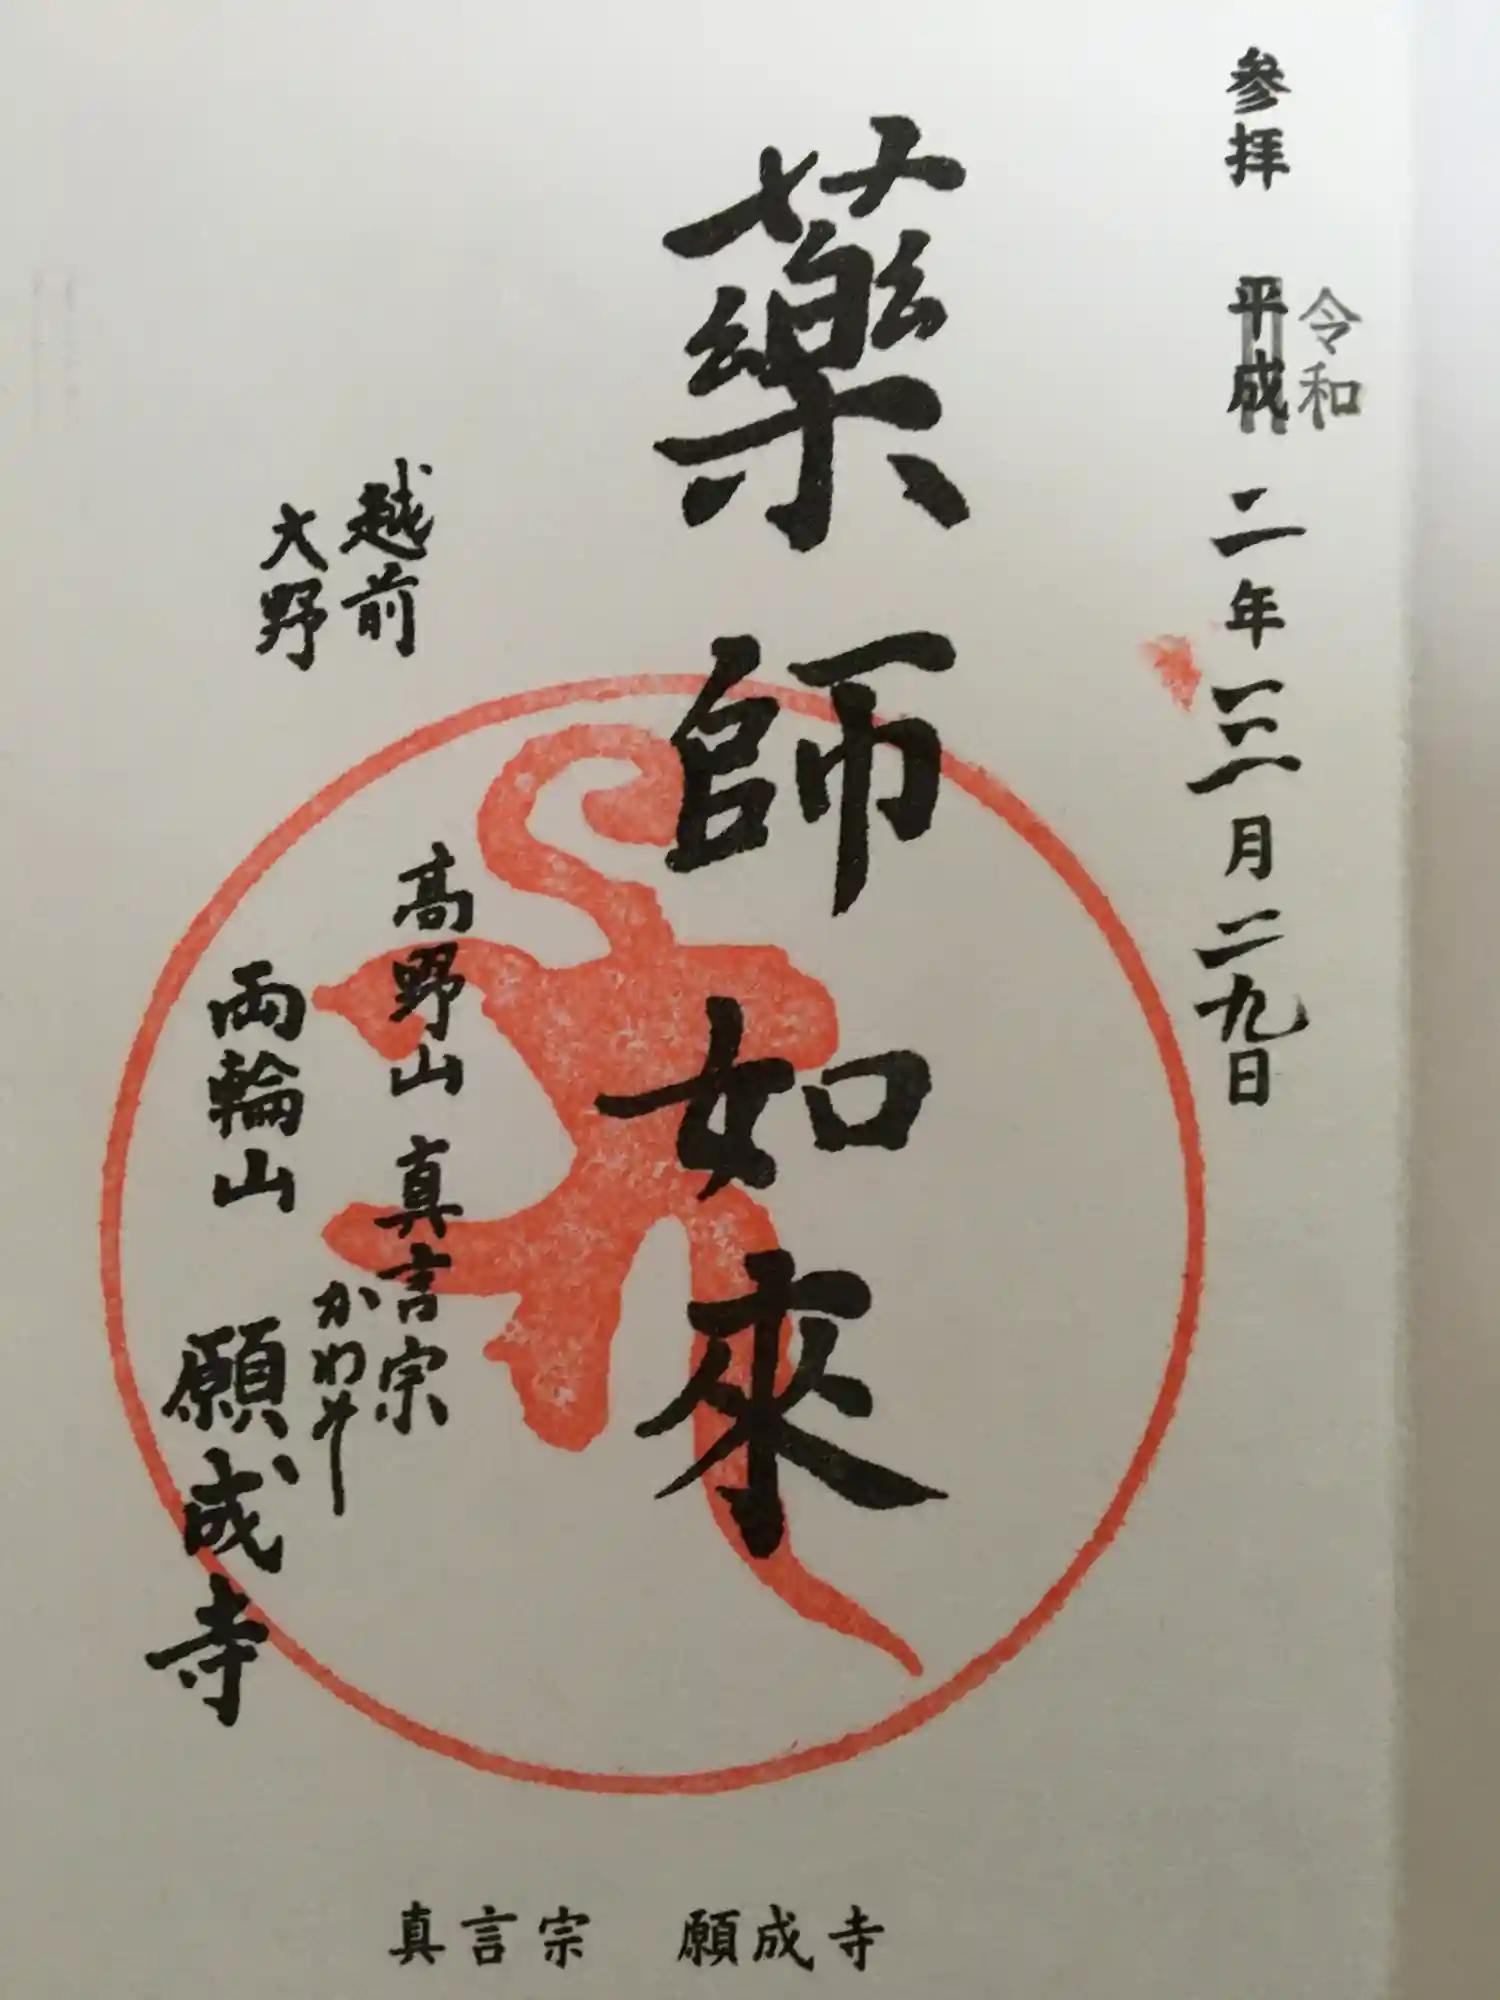 参拝 平成 二年 三月 二九日
令和
藥師如來
越前
大野
高野山 真言宗
両輪山 願成寺
真言宗 願成寺